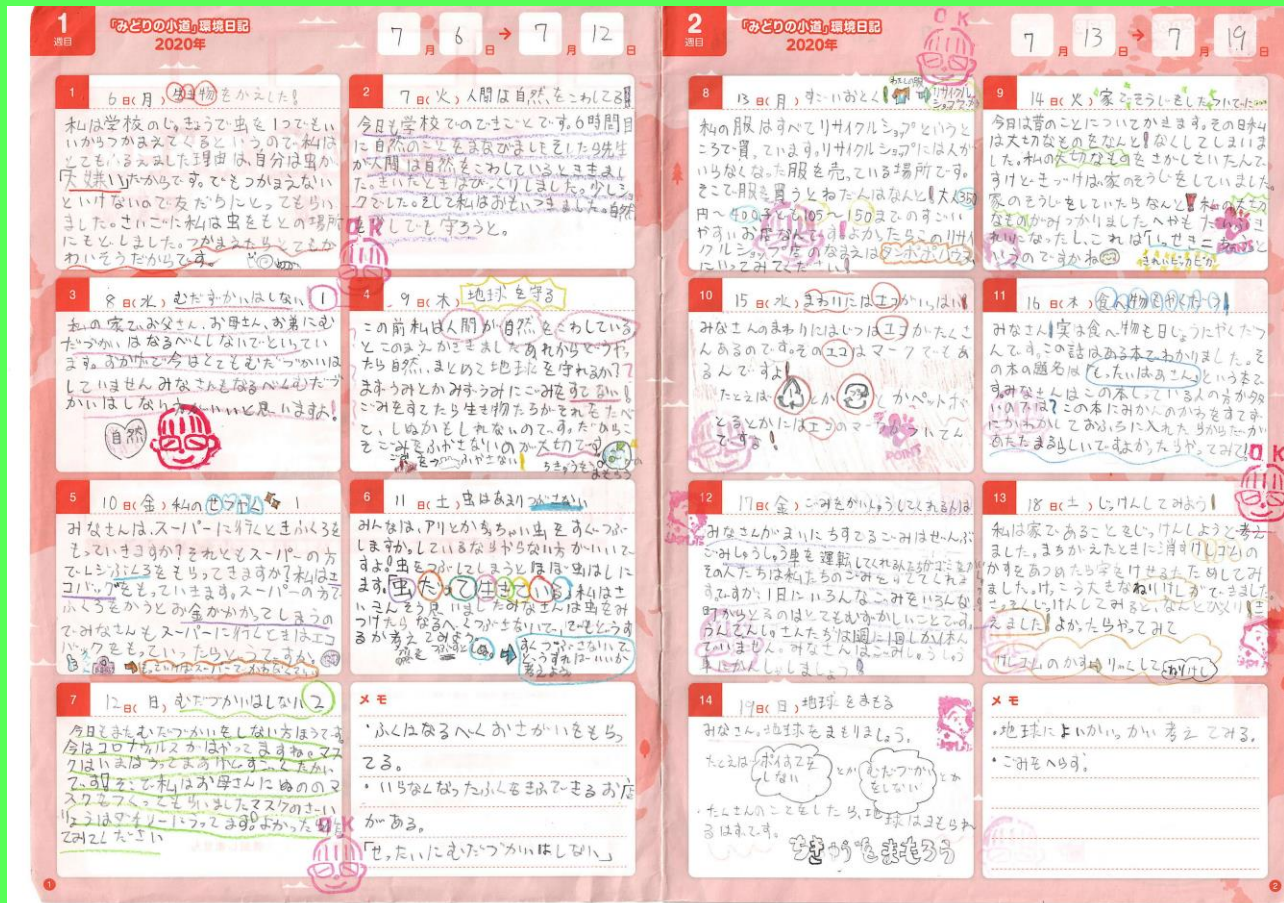 1
週目
「みどりの小道」環境日記
2020年
7月6日→7月12日
1 6日(月)生き物をかえした!
私は学校のじゅぎょうで虫を1つでもい
いからつかまえてくるというので、私は
とても
ました理由は、自分は虫が
「大嫌い」だからです。でもつかまえない
といけないので友だちにとってもらい
ました。さいごに私は虫をもとの場所
にもどしました。つかまえたらとてもか
わいそうだからです。
2 7日(火)人間は自然をこわしてる!
今日も学校でのできごとです。6時間目
に自然のことをまなびましたそしたら先生
が人間は自然をこわしているとききまし
た。きいたときはびっくりしました。少しショッ
クでした。そして私はおもいつきました。自然
を少しでも守ろうと。
OK
3 8日(水)むだずかいはしない1
私の家で、お父さん、お母さん、お弟にむ
だづかいはなるべくしないでといってい
ます。おかげで今はとてもむだづかいは
していませんみなさんもなるべくむだづ
かいはしないほうがいいと思いますよ!
自然
4 9日(木)地球を守る
この前私は人間が自然をこわしている
とこのまえかききましたあれからどうやっ
たら自然、まとめて地球を守れるか?
まずうみとかみずうみにごみをすてない!
ごみをすてたら生き物たちがそれをたべ
て、しぬかもしれないのです。だから
こそごみをふやさないのが大切です
ふやさない!
5 10日(金)私のせつやく
みなさんは、スーパーに行くときふくろを
もっていきますか?それともスーパーの方
でレジぶくろをもらってきますか?私はエ
コバックをもっていきます。スーパーの方で
ふくろをかうとお金がかかってしまうの
でみなさんもスーパーに行くときはエコ
バックをもっていったらどうですか。
6 11日(土)虫はあまりつぶさない
みんなは、アリとかちっちゃい虫をすぐつぶ
しますか。しているならやらない方がいいで
すよ!虫をつぶしてしまうとほぼ虫はしに
ます。「虫だって生きている」私はさ
いきんそう思いましたみなさんは虫をみ
つけたらなるべくつぶさないで、
するか考えてみよう。
すぐつぶさないで
どうすればいいか
考えよう
7 12日(日)むだづかいはしない2
今日もまたむだづかいをしない方ほうです
今はコロナウイルスがはやってますね。マス
クはいまはうってますけどすごくたかい
です!そこで私はお母さんにぬののマ
スクをつくってもらいましたマスクのざい
りょうはダイソーにうってます。よかったら
みてください
OK
メモ
・ふくはなるべくおさがいをもら
てる。
・いらなくなったふくをきふできるお店
がある。
「ぜったいにむだづかいはしない」
1
2
週目
「みどりの小道」環境日記
2020年
OK
7月13日→7月19日
8 13日(月)すごいおとく!
わたしの服
リサイクル
ショップで
私の服はすべてリサイクルショップというと
ころで買っています。リサイクルショップには人が
いらなくなった服を売っている場所です。
そこで服を買うとねだんはなんと!大人350
円〜400子ども105〜150までのすごい
やすいお店なんです!よかったらこのリサイ
クルショップ店のなまえは
にいってみてください!
9 14日(火)家でそうじをしたついでに…
今日は昔のことについてかきます。その日私
は大切なものをなんと!なくしてしまいま
した。私の大切なものをさがしていたんで
すけどきづけば家のそうじをしていました
家のそうじをしていたらなんと!私の大切
なものがみつかりましたへやも
きれいになったし、これは「いっせき二ちょう」と
いうのですかね
きれいピッカピカ
POINT
10 15日(水)まわりにはエコがいっぱい!
みなさんのまわりにはじつはエコがたくさ
んあるのです。そのエコはマークでもあ
るんですよ!
たとえば とか とかペットボ
とるとかにはエコのマークがついてん
です!
POINT
11 16日(木)食べ物もやくだつ!
みなさん!実は食べ物を日じょうにやくだつ
んです。この話はある本でわかりました。そ
の本の題名は「もったいないばあさん」という本で
すみなさんはこの本しっている人の方が多
いのでは?この本にみかんのかわをすてず
にかわかしておふろに入れたらからだが
あたたまるらしいですよかったらやってみて!
OK
12 17日(金)ごみをかいしゅうしてくれる人は
みなさんがまいにちすてるごみはぜんぶ
ごみしゅうしゅう車を運転してくれる
その人たちは私たちのごみをとってくれま
すですが1日にいろんなごみをいろんな
町からとるのはとてもむずかしいことです。
うんてんしゅさんたちは週に1回しか休ん
でいません。みなさんはごみしゅうしゅう
車にかんしゃしましょう!
13 18日(土)じっけんしてみよう!
私は家であることをじっけんしようと考え
ました。まちがえたときに消すけしゴムの
かすをあつめたら字をけせるか、ためしてみ
ました。けっこう大きなねりけしができました
さっそくじっけんしてみると、なんとびっくり!
えました!よかったらやってみて
けしゴムのかす→りゃくしてねりけし
14 19日(日)地球をまもる
みなさん。地球をまもりましょう。
たとえばポイすてを
しない
とか
むだづかい
をしない
とか
・たくさんのことをしたら、地球はまもられ
るはずです。
ちきゅうをまもろう
メモ
・地球によいかいっかい考えてみる。
・ごみをへらす。
2